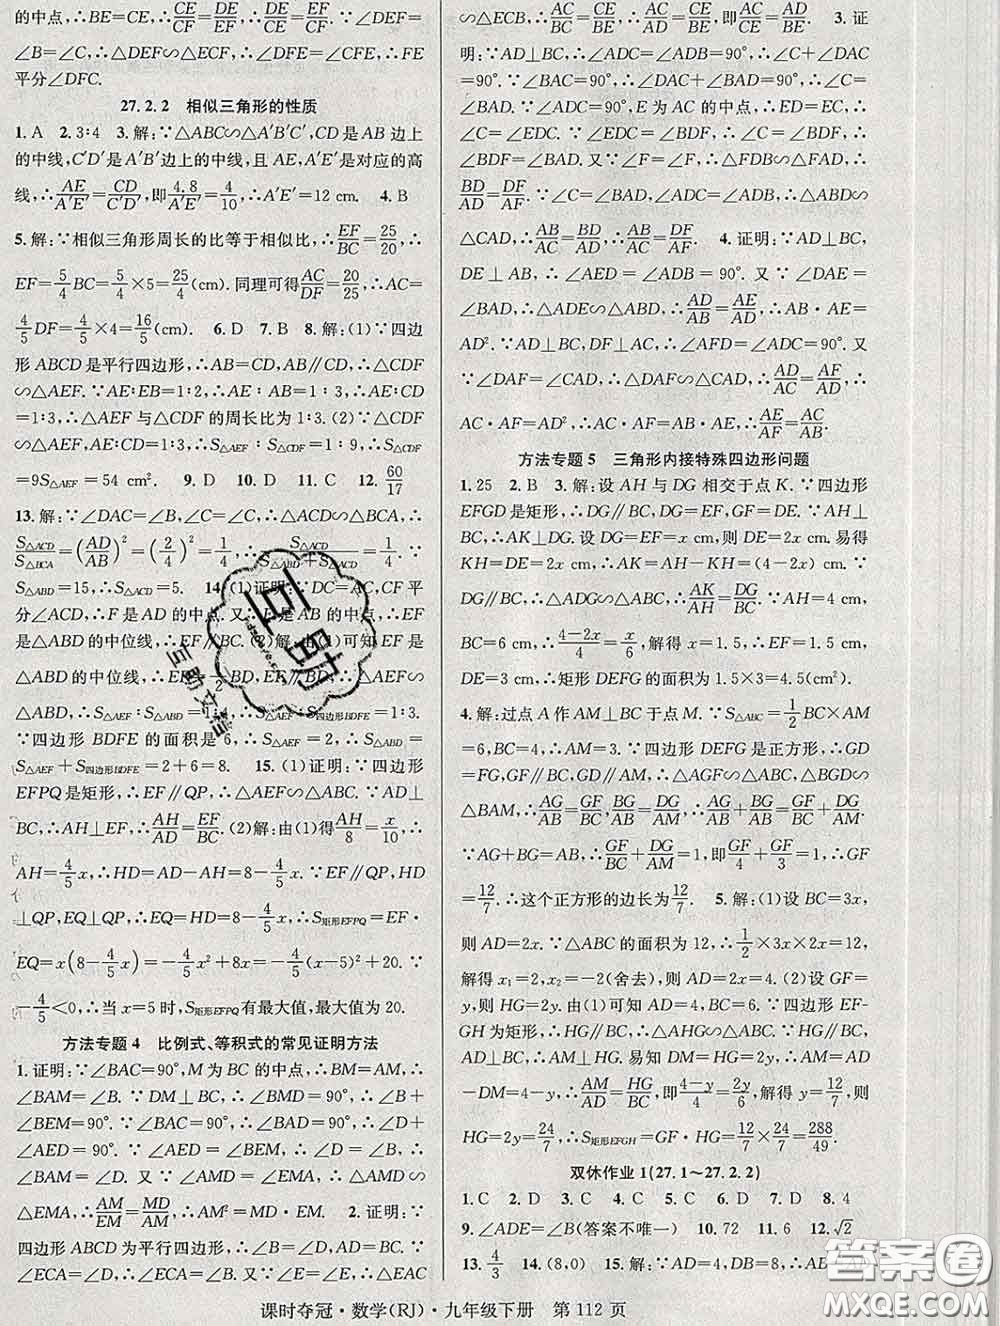 的中点,∴CE=BE,∴CE/CF=DE/EF,∴CE/DE=CF/EF.∵∠DEF
=∠B=∠C,∴△DEF∽△ECF,∴∠DFE=∠CFE,∴FE
平分∠DFC.
27.2.2 相似三角形的性质
1.A 2.3∶4 3.解:∵△ABC∽△A′B′C′,CD是AB边上
的中线,C′D′是A′B′边上的中线,且AE,A′E′是对应的高
线,∴AE/A′E′=CD/C′D′,即4.8/A′E′=4/10,∴A′E′=12 cm. 4.B
5.解:∵相似三角形周长的比等于相似比,∴EF/BC=25/20,∴
EF=5/4BC=5/4×5=25/4(cm).同理可得AC/DF=20/25,∴AC=
4/5DF=4/5×4=16/5(cm). 6.D 7.B 8.解:(1)∵四边
形ABCD是平行四边形,∴AB=CD,AB∥CD,∴△CDF
∽△AEF.∵AE∶EB=1∶2,∴AE∶AB=1∶3,∴AE∶CD
=1∶3,∴△AEF与△CDF的周长比为1∶3.(2)∵△CDF
∽△AEF,AE∶CD=1∶3,∴S△AEF∶S△CDF=1∶9,∴S△CDF
=9S△AEF=54(cm²). 9.D 10.D 11.D 12.60/17
13.解:∵∠DAC=∠B,∠C=∠C,∴△ACD∽△BCA,∴
S△ACD/S△BCA=(AD/AB)²=(2/4)²=1/4,∴S△ACD/(S△ABD+S△ACD)=1/4.∵S△ABD
=15,∴S△ACD=5. 14.(1)证明:∵DC=AC,CF平
分∠ACD,∴F是AD的中点.又∵E是AB的中点,∴EF是
△ABD的中位线,∴EF∥BC.(2)解:由(1)可知,EF是
△ABD的中位线,∴EF∶BD=1∶2,EF∥BD,∴△AEF∽
△ABD,∴S△AEF∶S△ABD=1∶4,∴S△AEF∶S四边形BDFE=1∶3.
∵四边形BDFE的面积是6,∴S△AEF=2,∴S△ABD=
S△AEF+S四边形BDFE=2+6=8. 15.(1)证明:∵四边形
EFPQ是矩形,∴EF∥QP,∴△AEF∽△ABC.∵AD⊥
BC,∴AH⊥EF,∴AH/AD=EF/BC.(2)解:由(1)得AH/8=x/10,∴
AH=4/5x,∴HD=AD-AH=8-4/5x.∵EF∥QP,HD
⊥QP,EQ⊥QP,∴EQ=HD=8-4/5x,∴S矩形EFPQ=EF·
EQ=x(8-4/5x)=-4/5x²+8x=-4/5(x-5)²+20.∵
-4/5<0,∴当x=5时,S矩形EFPQ有最大值,最大值为20.
方法专题4 比例式、等积式的常见证明方法
1.证明:∵∠BAC=90°,M为BC的中点,∴BM=AM,∴
∠BAM=∠B.∵DM⊥BC,∴∠BMD=90°,∴∠B+
∠BEM=90°.∵∠BAC=90°,∴∠BAC=90°,∴∠D+
∠AED=90°.∵∠AED=∠BEM,∴∠B=∠D,∴
∠BAM=∠D.又∵∠AMD=∠EMA,∴△AMD∽
△EMA,∴AM/EM=MD/AM,∴AM²=MD·EM. 2.证明:∵
四边形ABCD为平行四边形,∴∠B=∠D,AD∥BC.∵
∠ECA=∠D,∴∠ECA=∠B.∵∠E=∠E,∴△EAC
∽△ECB,∴AC/BC=CE/BE.∵BC=AD,∴AC/AD=CE/BE,即AC/CE=AD/BE. 3.证
明:∵AD⊥BC,∴∠ADC=∠ADB=90°,∴∠C+∠DAC
=90°.∵∠BAC=90°,∴∠BAD+∠DAC=90°,∴∠C=
∠BAD.∵∠ADC=90°,E为AC的中点,∴ED=EC,∴
∠C=∠EDC.∵∠EDC=∠BDF,∴∠BDF=∠C,∴
∠BDF=∠BAD.又∵∠F=∠F,∴△FDB∽△FAD,∴
BD/AD=DF/AF.∵∠C=∠BAD,∠ADC=∠ADB,∴△ABD∽
△CAD,∴AB/AC=BD/AD,∴AB/AC=DF/AF. 4.证明:∵AD⊥BC,
DE⊥AB,∴∠AED=∠ADB=90°.又∵∠DAE=
∠BAD,∴△ADE∽△ABD,∴AD/AB=AE/AD,∴AB·AE=
AD².∵AD⊥BC,DF⊥AC,∴∠AFD=∠ADC=90°.又
∵∠DAF=∠CAD,∴△DAF∽△CAD,∴AD/AC=AF/AD,∴
AC·AF=AD²,∴AB·AE=AC·AF,∴AE/AF=AC/AB.
方法专题5 三角形内接特殊四边形问题
1.25 2.B 3.解:设AH与DG相交于点K.∵四边形
EFGD是矩形,∴DG∥BC,DG=EF,GF=DE.∵AH⊥
BC,∴AK⊥DG.设DG=EF=x cm,则DE=2x cm.易得
KH=DE=2x cm,∴AK=AH-KH=(4-2x) cm.∵
DG∥BC,∴△ADG∽△ABC,∴AK/AH=DG/BC.∵AH=4 cm,
BC=6 cm,∴(4-2x)/4=x/6,解得x=1.5,∴DG=1.5 cm,
DE=3 cm,∴矩形DEFG的面积为1.5×3=4.5(cm²).
4.解:过点A作AM⊥BC于点M.∵S△ABC=1/2BC×AM
=6,BC=4,∴AM=3.∵四边形DEFG是正方形,∴GD
=FG,GF∥BC,GD∥AM,∴△AGF∽△ABC,△BDG∽
△BAM,∴AG/AB=GF/BC,BG/AB=DG/AM,∴AG/AB+BG/AB=GF/BC+DG/AM.
∵AG+BG=AB,∴GF/BC+DG/AM=1,即GF/4+GF/3=1,∴GF
=12/7,∴这个正方形的边长为12/7. 5.解:(1)设BC=3x,
则AD=2x.∵△ABC的面积为12,∴1/2×3x×2x=12,
解得x₁=2,x₂=-2(舍去),则AD=2x=4.(2)设GF=
y,则HG=2y.由(1)可知AD=4,BC=6.∵四边形EF-
GH为矩形,∴HG∥BC,∴△AHG∽△ABC.∵AM=AD
-DM=4-y,∴AM/AD=HG/BC,即(4-y)/4=2y/6,解得y=12/7,则
HG=2y=24/7,∴S矩形EFGH=HG·GF=12/7×24/7=288/49.
双休作业1(27.1~27.2.2)
1.C 2.D 3.D 4.B 5.C 6.C 7.D 8.4
9.∠ADE=∠B(答案不唯一) 10.72 11.6 12.√2
13.4/3 14.(8,0) 15.解:
课时夺冠·数学(RJ)·九年级下册 第112页
互助
互助文档
答案圈
MXQE.COM